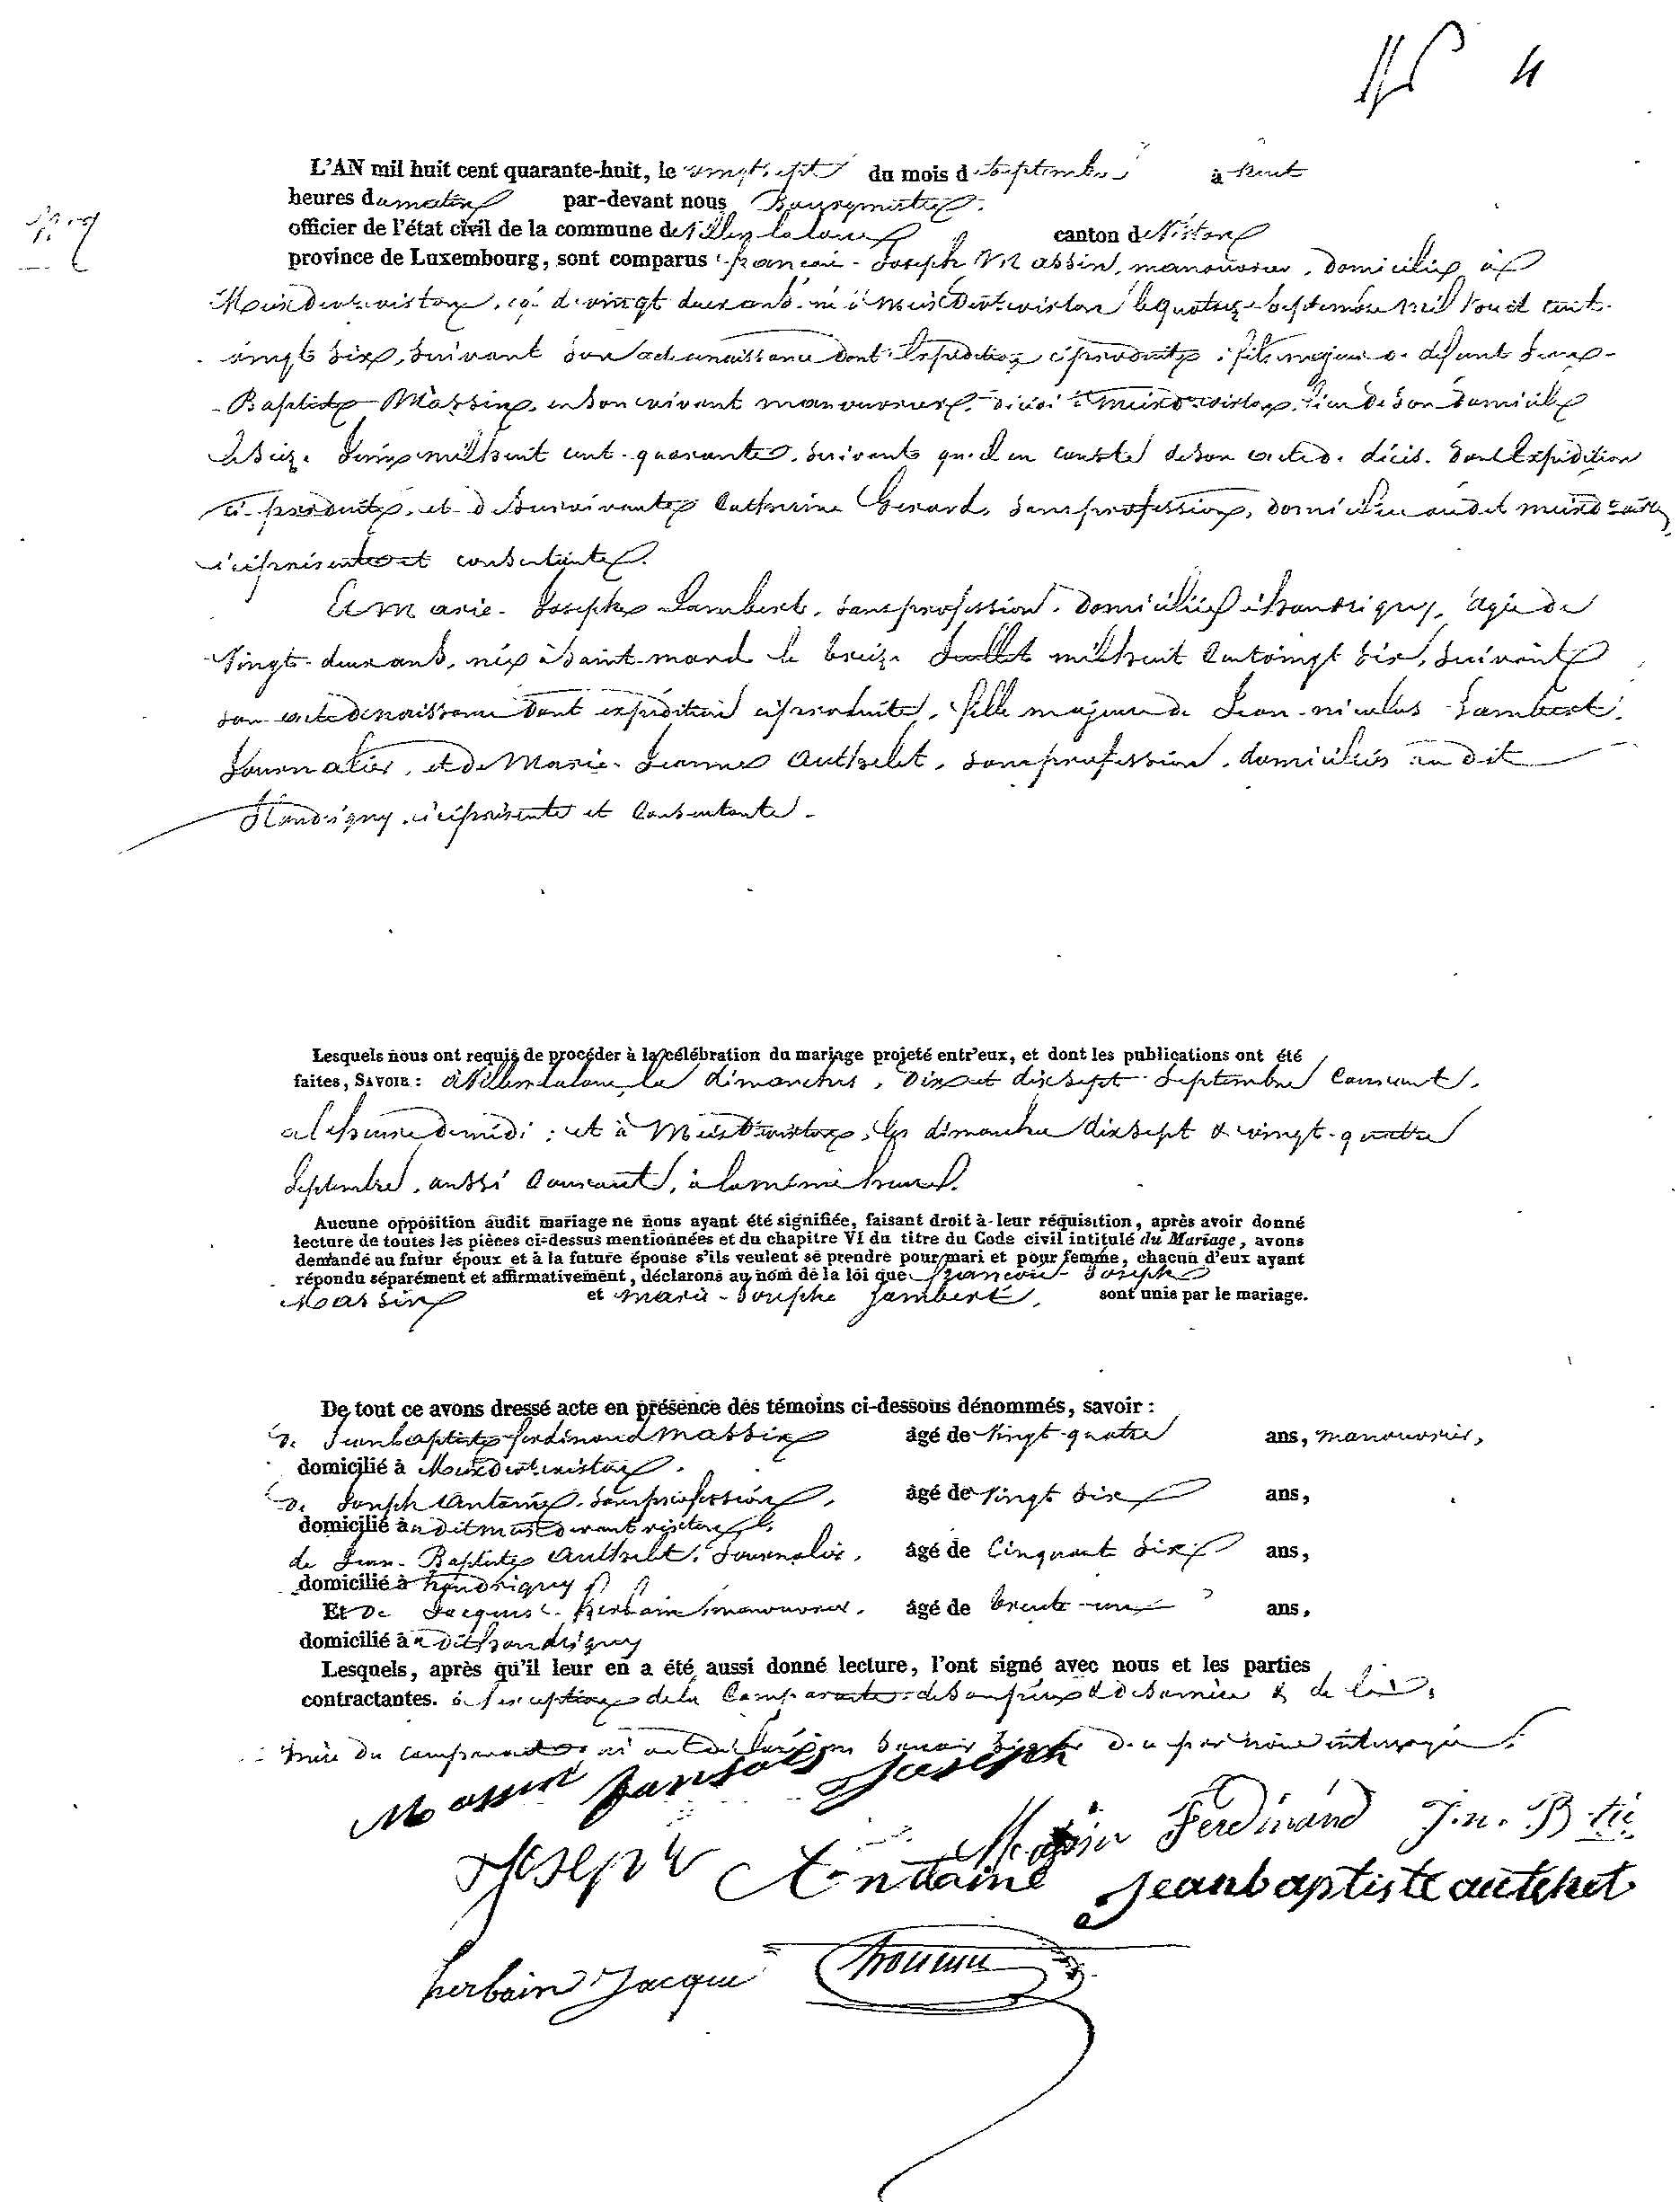 4
L'AN mil huit cent quarante-huit, le vingt sept du mois d Septembre à huit
heures du matin par-devant nous Bourgmestre
officier de l'état civil de la commune de Villers la loue canton de Virton
province de Luxembourg, sont comparus françois-Joseph Massin, manouvrier, domicilié à
Meix Devt virton, agé de vingt deux ans, né à meix Devt virton le quatorze Septembre mil huit cent
vingt six, suivant son acte de naissance dont l'expédition ci produite, fils majeur de défunt Jean-
Baptiste Massin, en son vivant manouvrier, décédé à meix Dt virton, lieu de son domicile
le seize Juin mil huit cent quarante, suivant qu'il en conste de son acte de décès dont l'expédition
ci produite, et de survivante Catherine Gerard, sans profession, domiciliée audit meix Dt virton
ici présente et consentante.
Et Marie-Josephe Lambert, sans profession, domiciliée à houdrigny, agée de
Vingt-deux ans, née à Saint-mard le treize Juillet mil huit Cent vingt six, suivant
son acte de naissance dont expédition ci produite, fille majeure de Jean-nicolas Lambert,
Journalier, et de Marie-Jeanne Authelet, sans profession, domiciliés au dit
Houdrigny, ici présente et Consentante.
Lesquels nous ont requis de procéder à la célébration du mariage projeté entr'eux, et dont les publications ont été
faites, SAVOIR : à Villers la loue les dimanches, Dix et dix sept Septembre Courant,
à l'heure de midi ; et à Meix Dt virton, les dimanches dix sept & vingt-quatre
Septembre, aussi Courant, à la même heure.
Aucune opposition audit mariage ne nous ayant été signifiée, faisant droit à leur réquisition, après avoir donné
lecture de toutes les pièces ci-dessus mentionnées et du chapitre VI du titre du Code civil intitulé du Mariage, avons
demandé au futur époux et à la future épouse s'ils veulent se prendre pour mari et pour femme, chacun d'eux ayant
répondu séparément et affirmativement, déclarons au nom de la loi que françois-Joseph
Massin et Marie-Josephe Lambert, sont unis par le mariage.
De tout ce avons dressé acte en présence des témoins ci-dessous dénommés, savoir :
De Jean baptiste ferdinand Massin âgé de Vingt-quatre ans, manouvrier,
domicilié à Meix Devt virton.
De Joseph Antoine, sans profession, âgé de Vingt Six ans,
domicilié à u dit meix devant virton
de Jean-Baptiste Authelet, Journalier, âgé de Cinquante Six ans,
domicilié à houdrigny
Et De Jacques herbain, manouvrier, âgé de trente-un ans,
domicilié à u dit houdrigny
Lesquels, après qu'il leur en a été aussi donné lecture, l'ont signé avec nous et les parties
contractantes. à l'exception de la Comparante, de son père & de sa mère & de la
mère du comparant ont déclaré ne savoir signer de ce par nous interrogés.
Massin fransois Joseph
Massin Ferdinand J.n. B.tte
Joseph Antoine Jeanbaptiste autelet
herbain Jacque